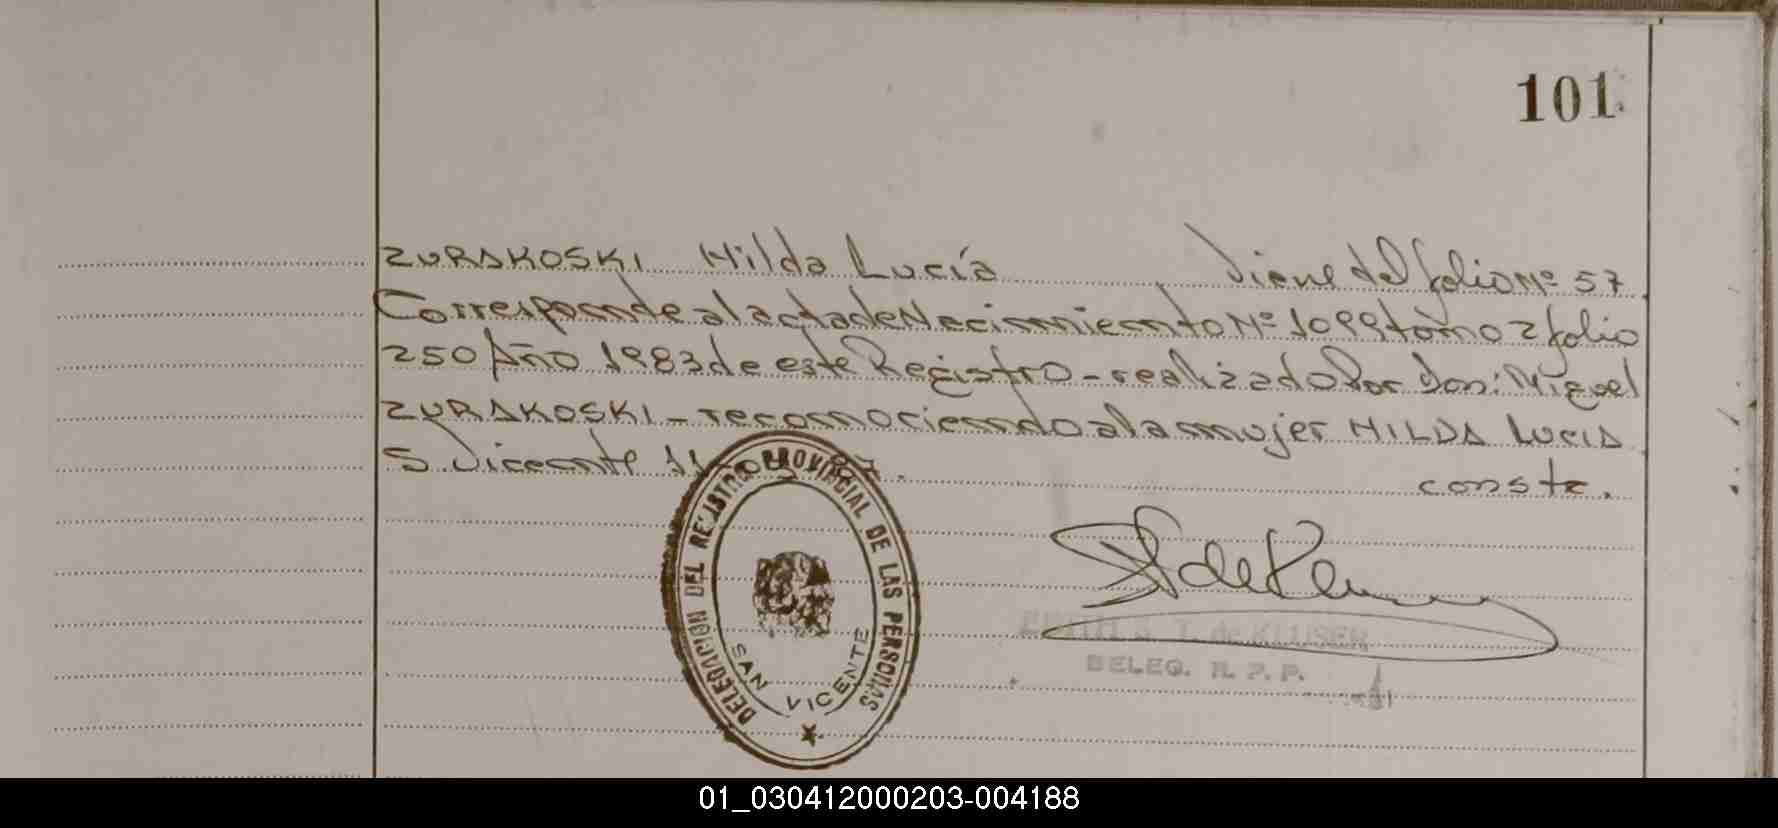 101
ZURAKOSKI Hilda Lucía Viene del folio Nº 57
Corresponde al acta de Nacimiento Nº 1099 tomo 2 folio
250 Año 1983 de este Registro - realizado Por Don: Miguel
ZURAKOSKI - reconociendo a la mujer HILDA LUCIA
S. Vicente 11
conste.
DELEGACION DEL REGISTRO PROVINCIAL DE LAS PERSONAS
SAN VICENTE
T. de KLUSER
DELEG. R. P. P.
01_030412000203-004188